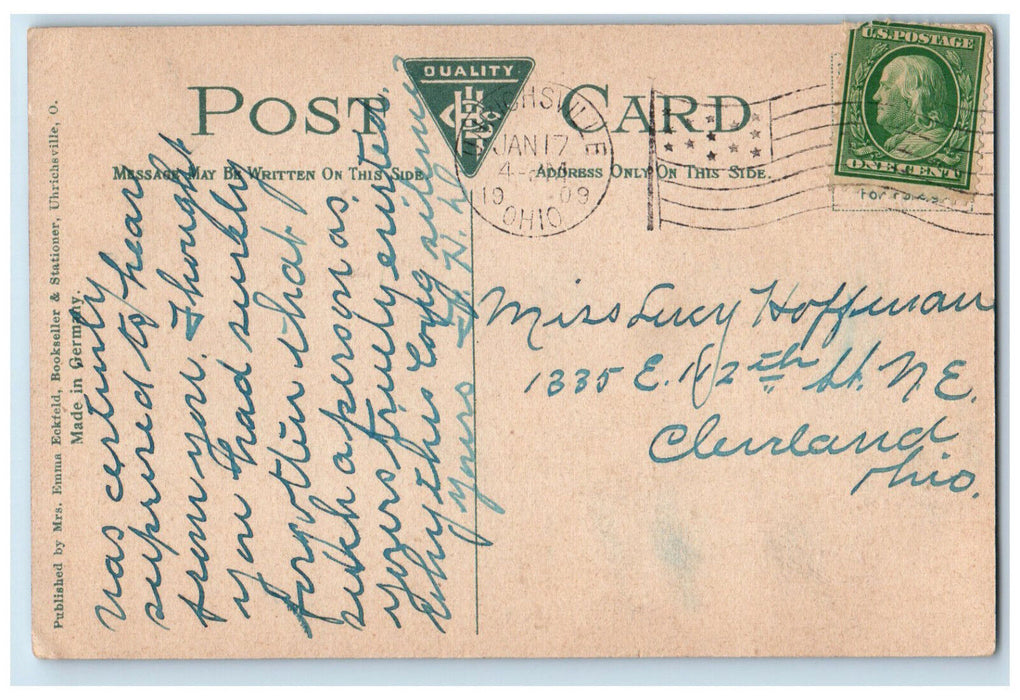 Published by Mrs. Emma Eckfeld, Bookseller & Stationer, Uhrichsville, O.
Made in Germany.
POST CARD
QUALITY
MESSAGE MAY BE WRITTEN ON THIS SIDE
ADDRESS ONLY ON THIS SIDE.
JAN 17
4- M
19 09
OHIO
U.S.POSTAGE
ONE CENT
Was certainly
suprised to hear
from you. Thought
you had surely
forgotten that
such a person as
yours truely existed.
Why this long silence?
Yours
Miss Lucy Hoffman
1335 E. 112th St. N.E.
Cleveland
Ohio.